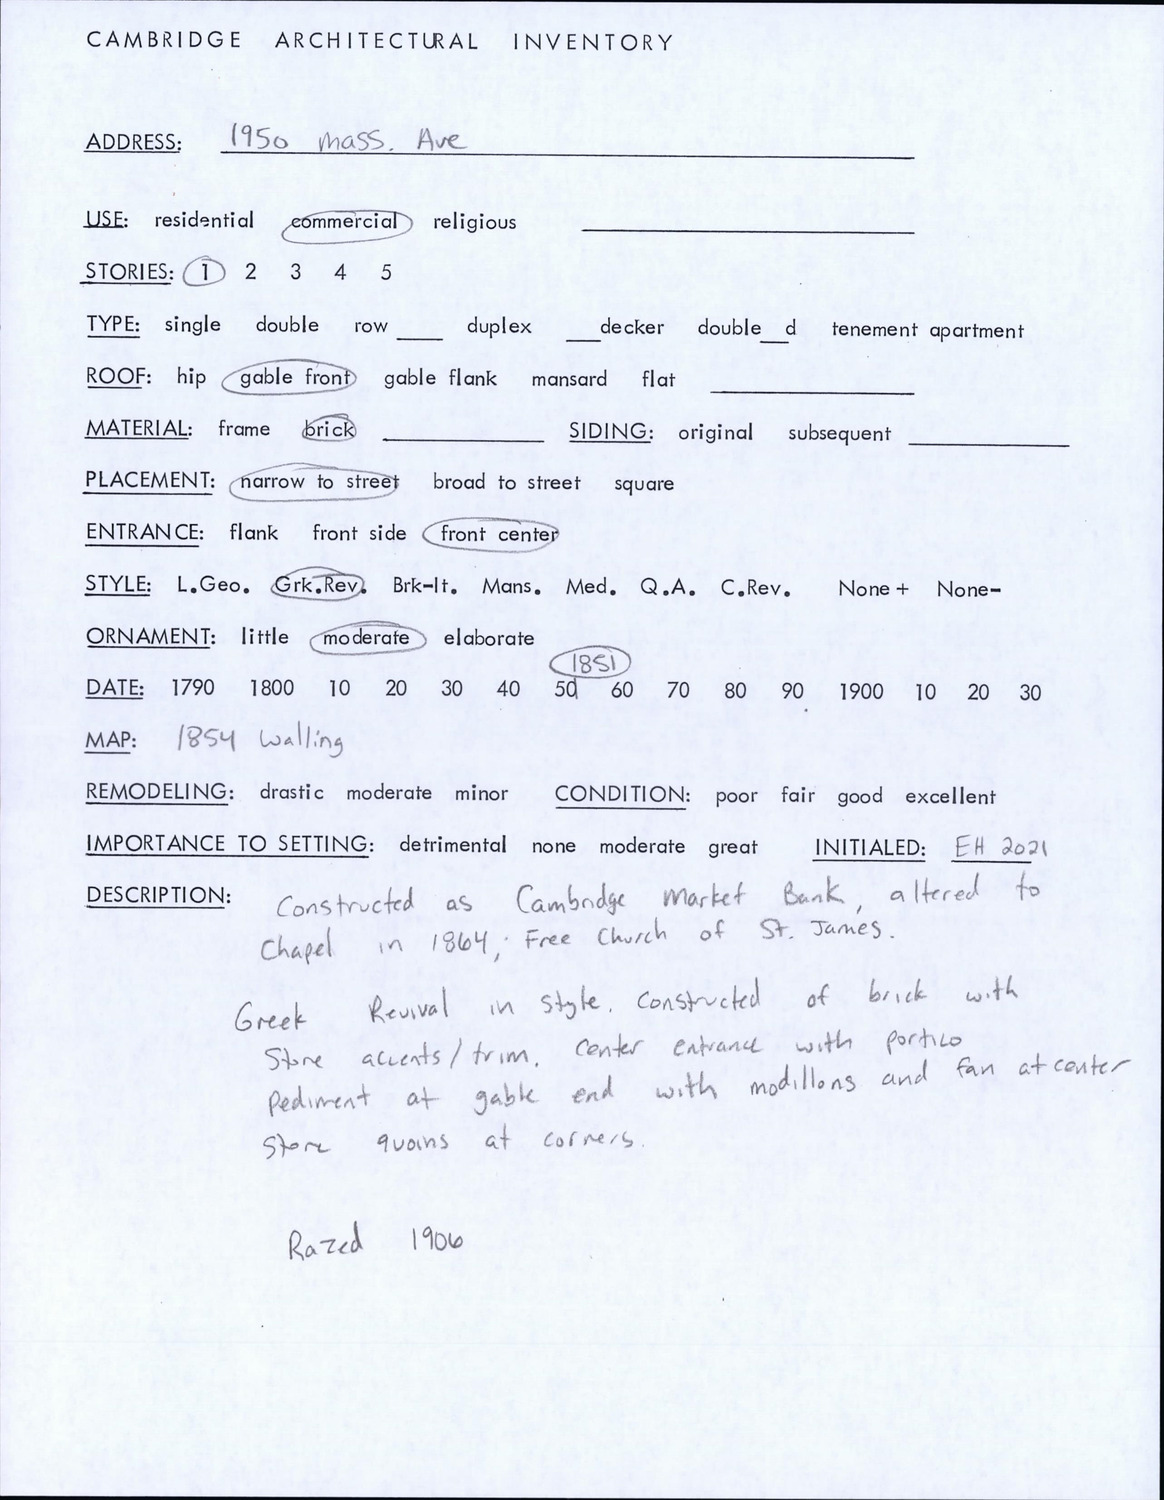 CAMBRIDGE ARCHITECTURAL INVENTORY
ADDRESS: 1950 Mass. Ave
USE: residential commercial religious
STORIES: 1 2 3 4 5
TYPE: single double row ___ duplex ___decker double__d tenement apartment
ROOF: hip gable front gable flank mansard flat
MATERIAL: frame brick SIDING: original subsequent
PLACEMENT: narrow to street broad to street square
ENTRANCE: flank front side front center
STYLE: L.Geo. Grk.Rev. Brk-It. Mans. Med. Q.A. C.Rev. None + None-
ORNAMENT: little moderate elaborate
1851
DATE: 1790 1800 10 20 30 40 50 60 70 80 90 1900 10 20 30
MAP: 1854 Walling
REMODELING: drastic moderate minor CONDITION: poor fair good excellent
IMPORTANCE TO SETTING: detrimental none moderate great INITIALED: EH 2021
DESCRIPTION: Constructed as Cambridge Market Bank, altered to
Chapel in 1864; Free Church of St. James.
Greek Revival in style. Constructed of brick with
Stone accents/trim. Center entrance with portico
Pediment at gable end with modillons and fan at center
Stone quoins at corners.
Razed 1906